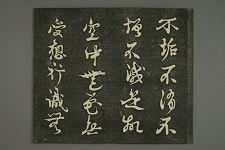 不垢不淨不
增不減是故
空中無色無
受想行識無